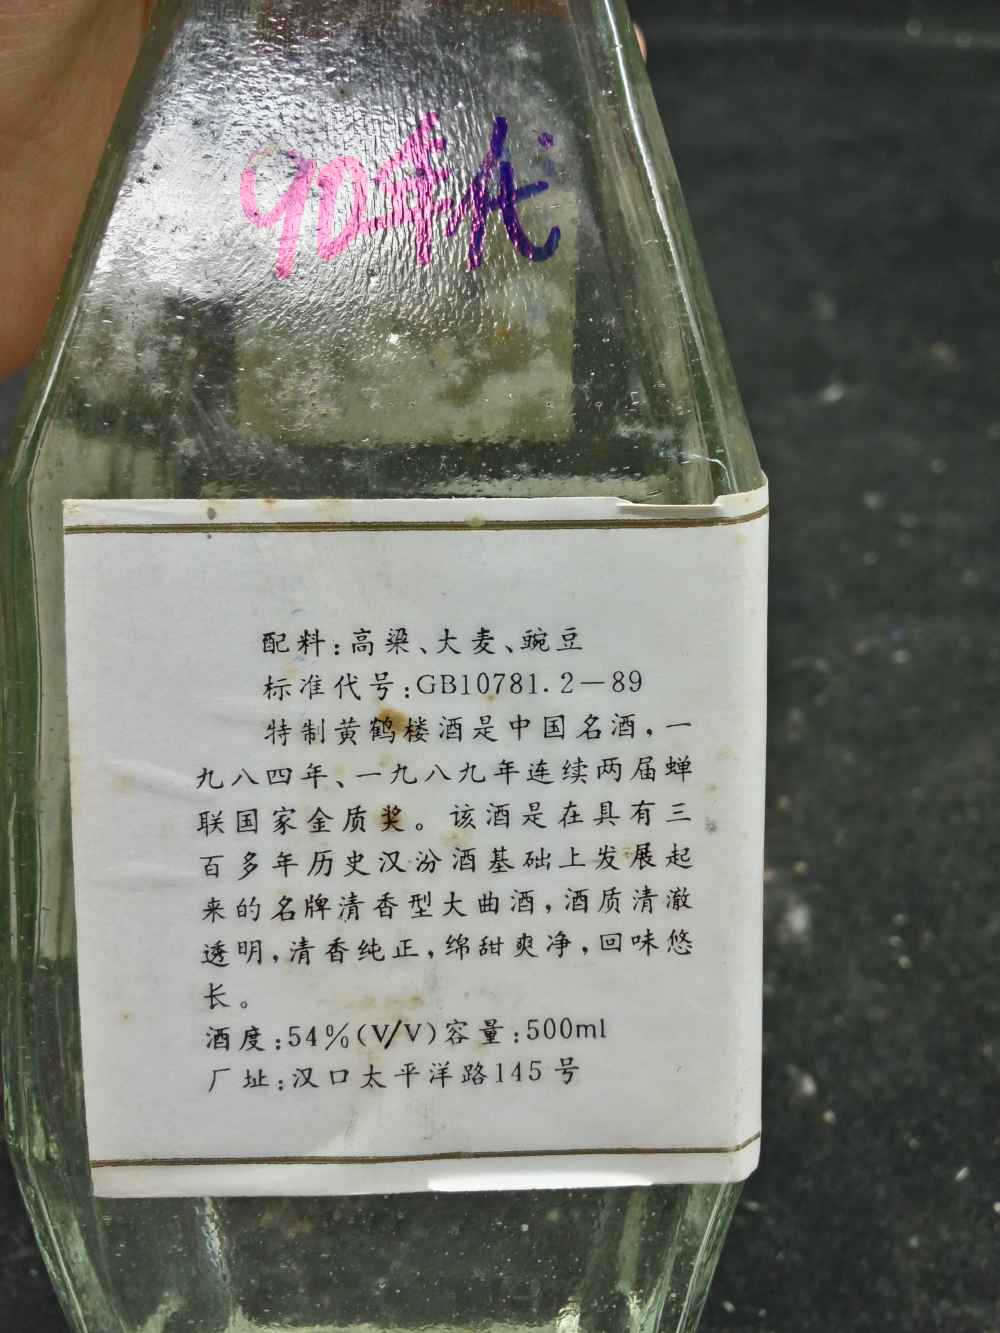 90年代
配料:高梁、大麦、豌豆
标准代号:GB10781.2—89
特制黄鹤楼酒是中国名酒,一
九八四年、一九八九年连续两届蝉
联国家金质奖。该酒是在具有三
百多年历史汉汾酒基础上发展起
来的名牌清香型大曲酒,酒质清澈
透明,清香纯正,绵甜爽净,回味悠
长。
酒度:54%(V/V)容量:500ml
厂址:汉口太平洋路145号